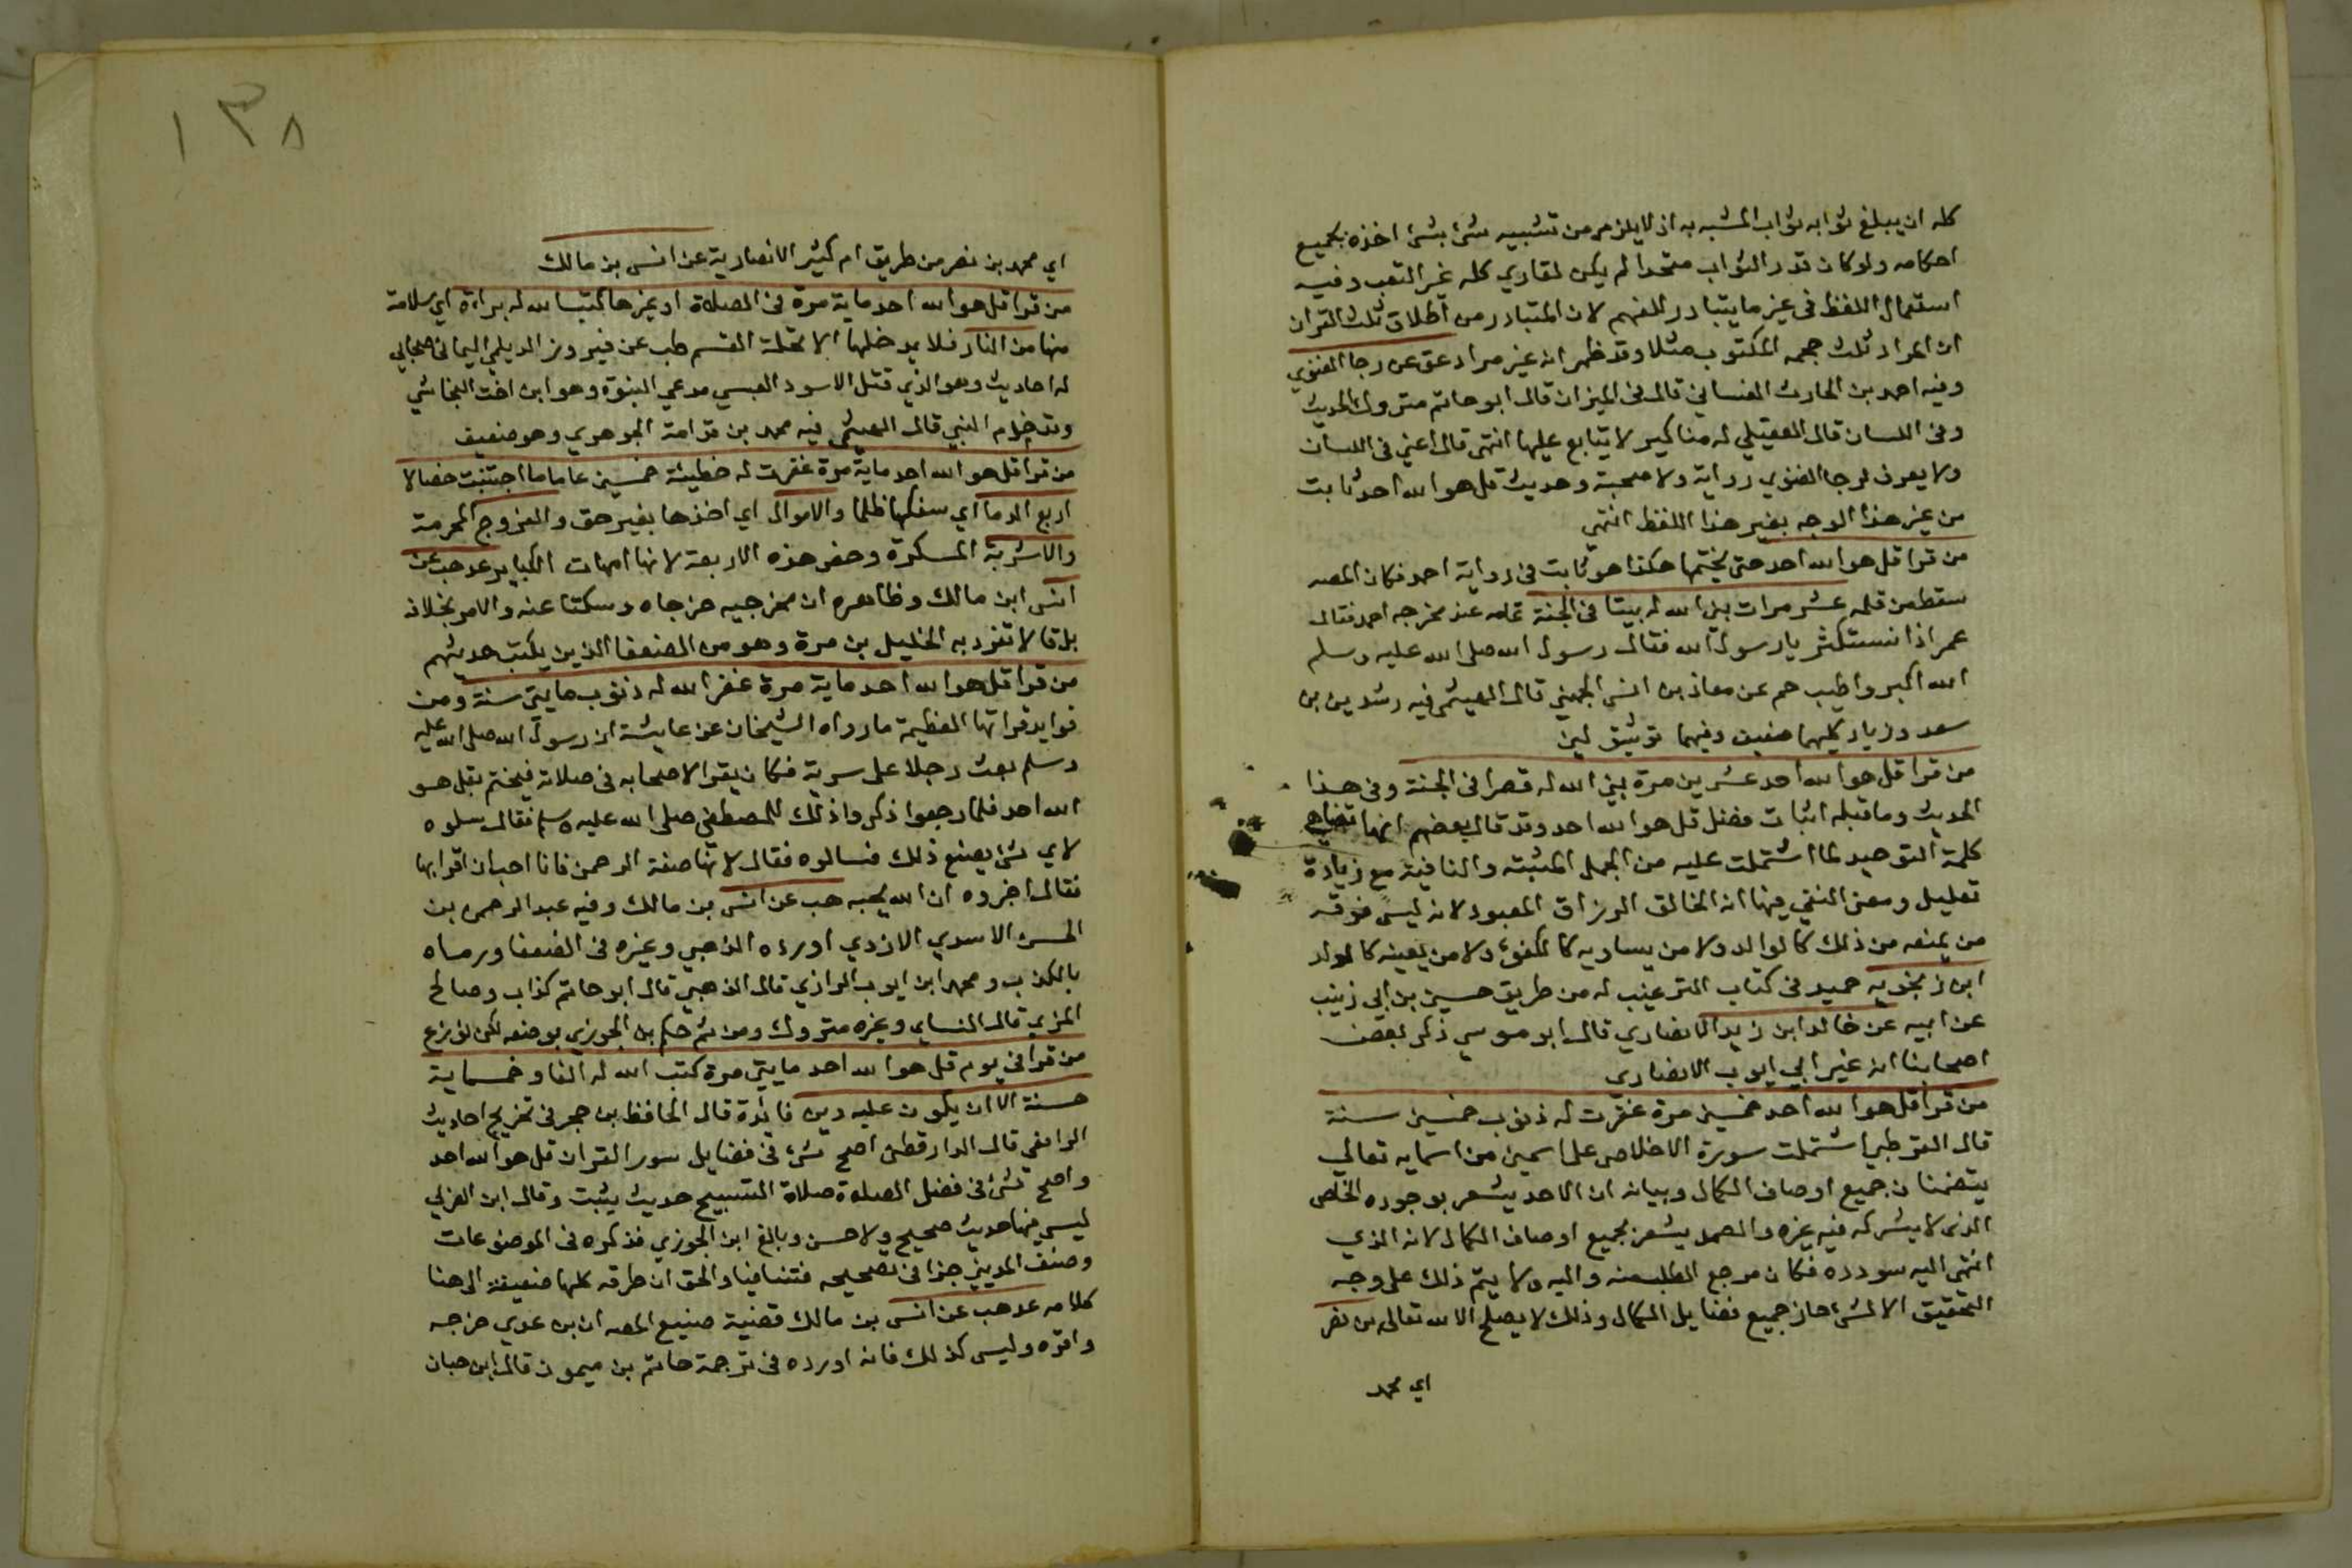 كله ان يبلغ ثوابه ثواب المشبه به اذ لا يلزم من تشبيه شئ بشئ اخذه بجميع
احكامه ولو كان قدر الثواب متحدا لم يكن لقاري كله غير التعب وفيه
استعمال اللفظ في غير ما يتبادر للفهم لان المتبادر من اطلاق ثلث القران
ان المراد ثلث حجمه المكتوب مثلا وقد ظهر انه غير مراد عق عن رجا الغنوي
وفيه احمد بن الحارث الغساني قال في الميزان قال ابو حاتم متروك الحديث
وفي اللسان قال العقيلي له مناكير لا يتابع عليها انتهى قال اعني في اللسان
ولا يعرف لرجا الغنوي رواية ولا صحبة وحديث قل هو الله احد ثابت
من غير هذا الوجه بغير هذا اللفظ انتهى
من قرا قل هو الله احد حتى يختمها هكذا هو ثابت في رواية احمد فكان المصه
سقط من قلمه عشر مرات بنى الله له بيتا في الجنة تمامه عند مخرجه احمد فقال
عمر اذا نستكثر يا رسول الله فقال رسول الله صلى الله عليه وسلم
الله اكبر واطيب حم عن معاذ بن انس الجهني قال الهيثمي فيه رشدين بن
سعد وزياد كليهما ضعيف وفيهما توثيق لين
من قرا قل هو الله احد عشرين مرة بنى الله له قصرا في الجنة وفي هذا
الحديث وما قبله اثبات فضل قل هو الله احد وقد قال بعضهم انها تضاهي
كلمة التوحيد لما اشتملت عليه من الجمل المثبته والنافية مع زيادة
تعليل ومعنى النفي فيها انه الخالق الرزاق المعبود لانه ليس فوقه
من يمنعه من ذلك كالوالد ولا من يساويه كالكفؤ ولا من يعينه كالولد
ابن زنجويه حميد في كتاب الترغيب له من طريق حسين بن ابي زينب
عن ابيه عن خالد ابن زيد الانصاري قال ابو موسى ذكر بعض
اصحابنا انه غير ابي ايوب الانصاري
من قرا قل هو الله احد خمسين مرة غفرت له ذنوب خمسين سنة
قال القرطبي اشتملت سورة الاخلاص على اسمين من اسمايه تعالى
يتضمنان جميع اوصاف الكمال وبيانه ان الاحد يشعر بوجوده الخاص
الذى لا يشركه فيه غيره والصمد يشعر بجميع اوصاف الكمال لانه الذي
انتهى اليه سودده فكان مرجع الطلب منه واليه ولا يتم ذلك على وجه
التحقيق الا لمن حاز جميع فضايل الكمال وذلك لا يصلح الا لله تعالى بن نصر
اي محمد
١٣٨
اي محمد بن نصر من طريق ام كثير الانصارية عن انس بن مالك
من قرا قل هو الله احد ماية مرة في الصلاة او غيرها كتب الله له براءة اي سلامة
منها من النار فلا يدخلها الا تحلة القسم طب عن فيروز الديلمي اليماني صحابي
له احاديث وهو الذي قتل الاسود العبسي مدعي النبوة وهو ابن اخت النجاشي
وقد خدم النبي قال الهيثمي فيه محمد بن قدامة الجوهري وهو ضعيف
من قرا قل هو الله احد ماية مرة غفرت له خطيئة خمسين عاما ما اجتنبت خصالا
اربع الدما اي سفكها ظلما والاموال اي اخذها بغير حق والفروج المحرمة
والاشربة المسكرة وخص هذه الاربعة لانها امهات الكباير عد هب عن
انس ابن مالك وظاهره ان مخرجيه خرجاه وسكتا عنه والامر بخلافه
بل قالا تفرد به الخليل بن مرة وهو من الضعفا الذين يكتب حديثهم
من قرا قل هو الله احد ماية مرة غفر الله له ذنوب مايتي سنة ومن
فوايد قراتها العظيمة ما رواه الشيخان عن عايشة ان رسول الله صلى الله عليه
وسلم بعث رجلا على سرية فكان يقرا لاصحابه في صلاته فيختم بقل هو
الله احد فلما رجعوا ذكروا ذلك للمصطفى صلى الله عليه وسلم فقال سلوه
لاي شئ يصنع ذلك فسالوه فقال لانها صفة الرحمن فانا احب ان اقرا بها
فقال اخبروه ان الله يحبه هب عن انس بن مالك وفيه عبد الرحمن بن
الحسن الاسدي الازدي اورده الذهبي وغيره في الضعفا ورماه
بالكذب ومحمد ابن ايوب الرازي قال الذهبي قال ابو حاتم كذاب وصالح
المزي قال النساي وغيره متروك ومن ثم حكم بن الجوزي بوضعه لكن نوزع
من قرا في يوم قل هو الله احد مايتي مرة كتب الله له الفا وخمسماية
حسنة الا ان يكون عليه دين فائدة قال الحافظ بن حجر في تخريج احاديث
الرافعي قال الدارقطني اصح شئ في فضايل سور القران قل هو الله احد
واصح شئ في فضل الصلوة صلاة التسبيح حديث يثبت وقال ابن العزلي
ليس فيها حديث صحيح ولا حسن وبالغ ابن الجوزي فذكره في الموضوعات
وصنف المديني جزا في تصحيحه فتنافيا والحق ان طرقه كلها ضعيفة الى هنا
كلامه عد هب عن انس بن مالك قضية صنيع المصه ان بن عدي خرجه
واقره وليس كذلك فانه اورده في ترجمة حاتم بن ميمون قال ابن حبان